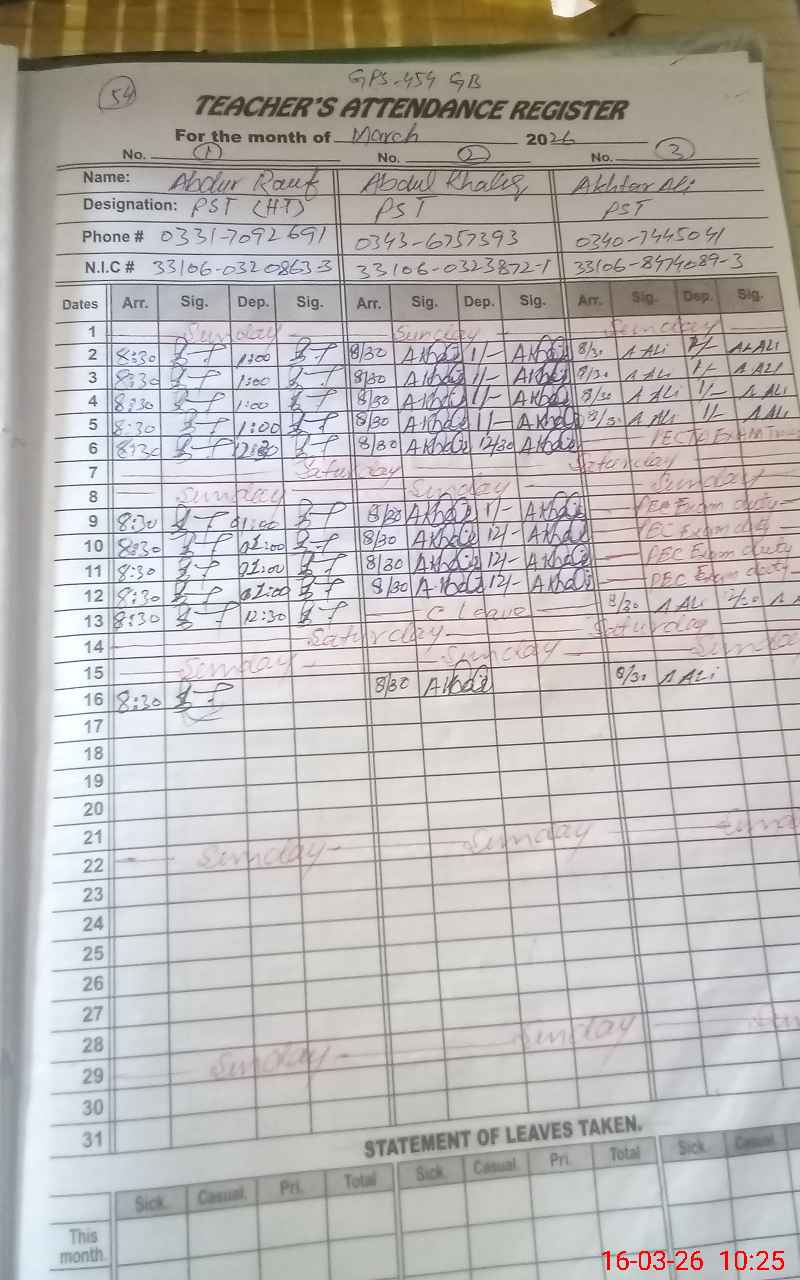 GPS-454 GB
54
TEACHER'S ATTENDANCE REGISTER
For the month of March 2026
No. 1 No. 2 No. 3
Name: Abdur Rauf Abdul Khaliq Akhtar Ali
Designation: PST (HT) PST PST
Phone # 0331-7092691 0343-6757393 0340-7445041
N.I.C # 33106-0320863-3 33106-0323872-1 33106-8474089-3
Dates Arr. Sig. Dep. Sig. Arr. Sig. Dep. Sig. Arr. Sig. Dep. Sig.
1 Sunday Sunday Sunday
2 8:30 1:00 8/30 1/- 8/30 A ALi 1/- A ALi
3 8:30 1:00 8/30 1/- 8/30 A ALi 1/- A ALi
4 8:30 1:00 8/30 1/- 8/30 A ALi 1/- A ALi
5 8:30 1:00 8/30 1/- 8/30 A ALi 1/- A ALi
6 8:30 12:30 8/30 12/30
7 Saturday Saturday
8 Sunday Sunday Sunday
9 8:30 01:00 8/30 1/- PEC Exam duty
10 8:30 8/30 12/- PEC Exam duty
11 8:30 8/30 12/- PEC Exam duty
12 8:30 8/30 12/- PEC Exam duty
13 8:30 12:30 C Leave 8/30 A ALi
14 Saturday Saturday
15 Sunday Sunday Sunday
16 8:30 8/30 8/30 A ALi
17
18
19
20
21
22 Sunday Sunday
23
24
25
26
27
28
29 Sunday Sunday
30
31
STATEMENT OF LEAVES TAKEN.
Sick. Casual. Pri. Total Sick. Casual. Pri. Total Sick. Casual.
This
month.
16-03-26 10:25